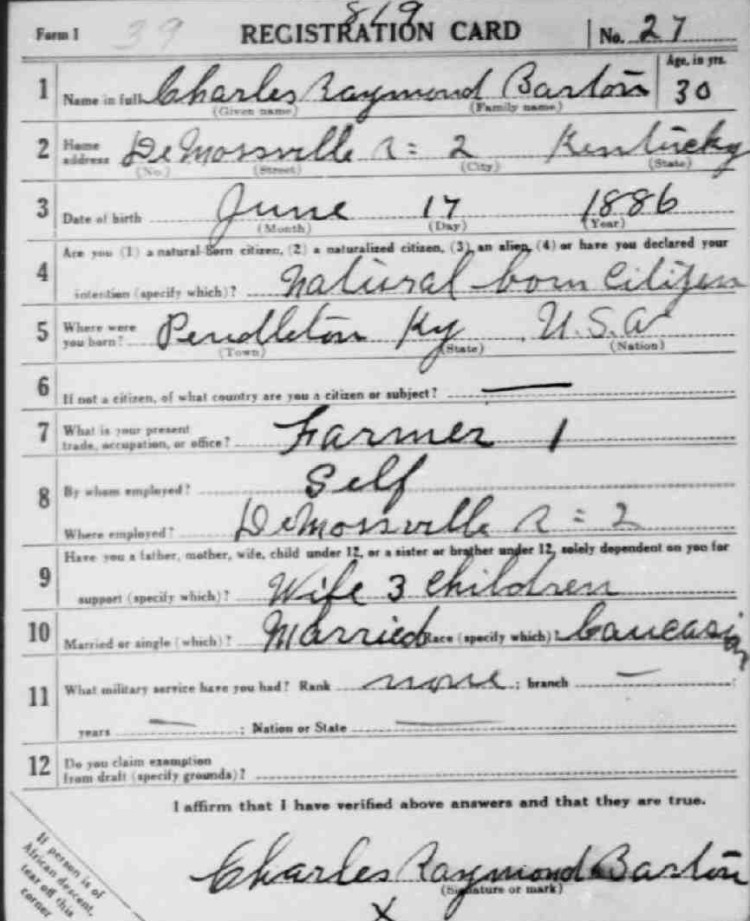 819
Form 1 39 REGISTRATION CARD No. 27
Age, in yrs.
1 Name in full Charles Raymond Barton 30
(Given name) (Family name)
2 Home address DeMossville R = 2 Kentucky
(No.) (Street) (City) (State)
3 Date of birth June 17 1886
(Month) (Day) (Year)
Are you (1) a natural-born citizen, (2) a naturalized citizen, (3) an alien, (4) or have you declared your
4 intention (specify which)? natural born Citizen
5 Where were you born? Pendleton Ky U.S.A
(Town) (State) (Nation)
6 If not a citizen, of what country are you a citizen or subject? —
7 What is your present
trade, occupation, or office? Farmer 1
8 By whom employed? Self
Where employed? DeMossville R = 2
Have you a father, mother, wife, child under 12, or a sister or brother under 12, solely dependent on you for
9 support (specify which)? Wife 3 Children
10 Married or single (which)? Married Race (specify which)? Caucasian
11 What military service have you had? Rank none ; branch —
years — ; Nation or State —
12 Do you claim exemption
from draft (specify grounds)?
I affirm that I have verified above answers and that they are true.
Charles Raymond Barton
(Signature or mark)
X
If person is of
African descent,
tear off this
corner